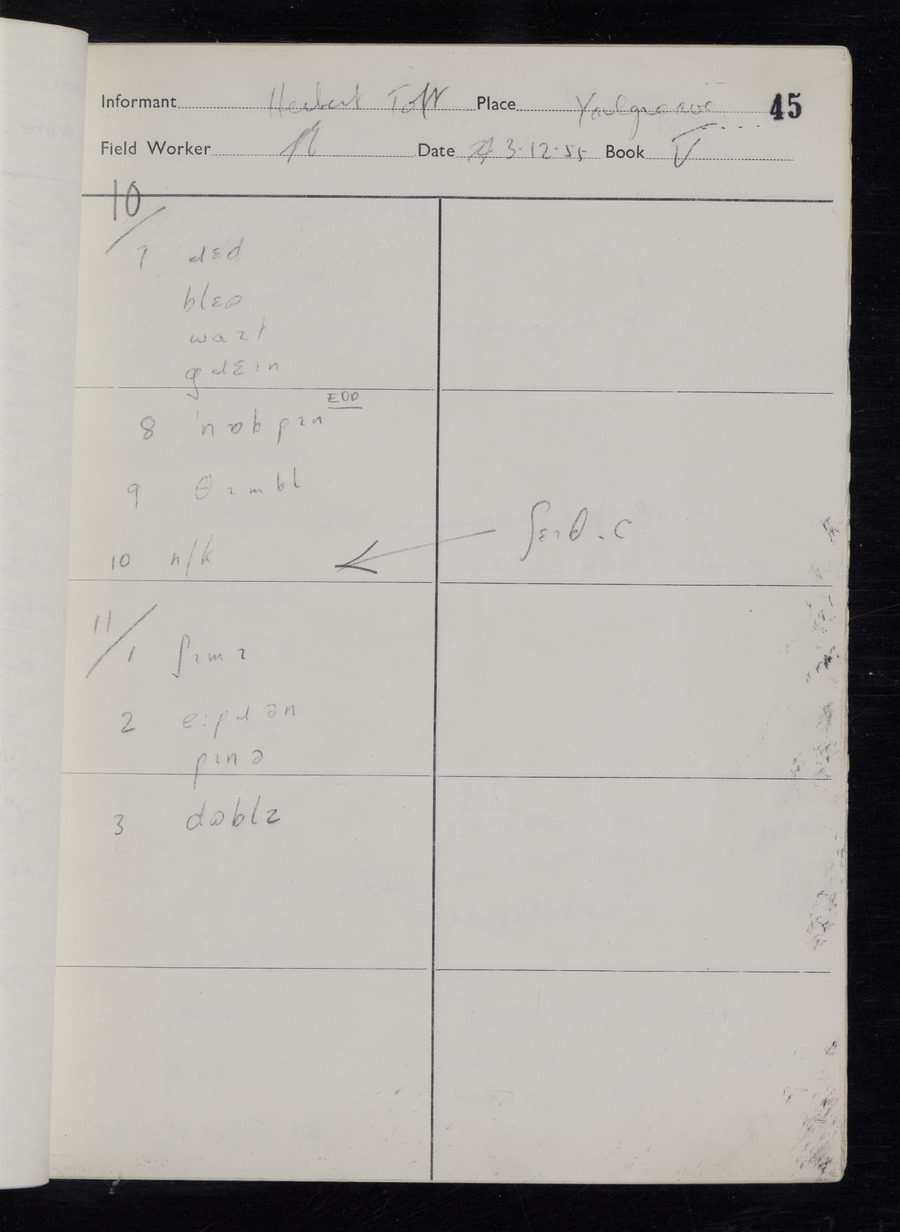 Informant Herbert Toft Place Youlgreave 45
Field Worker Date 3·12·55 Book V
10/
7 ɹɛd
blɛə
waɪt
gɹɛɪn
8 ˈnɒb pɪn EDD
9 θɪmbl
10 n/k ʃɛɪθ . c
11/
1 ʃɪmɪ
2 e:pɹən
pɪnə
3 dʊblz